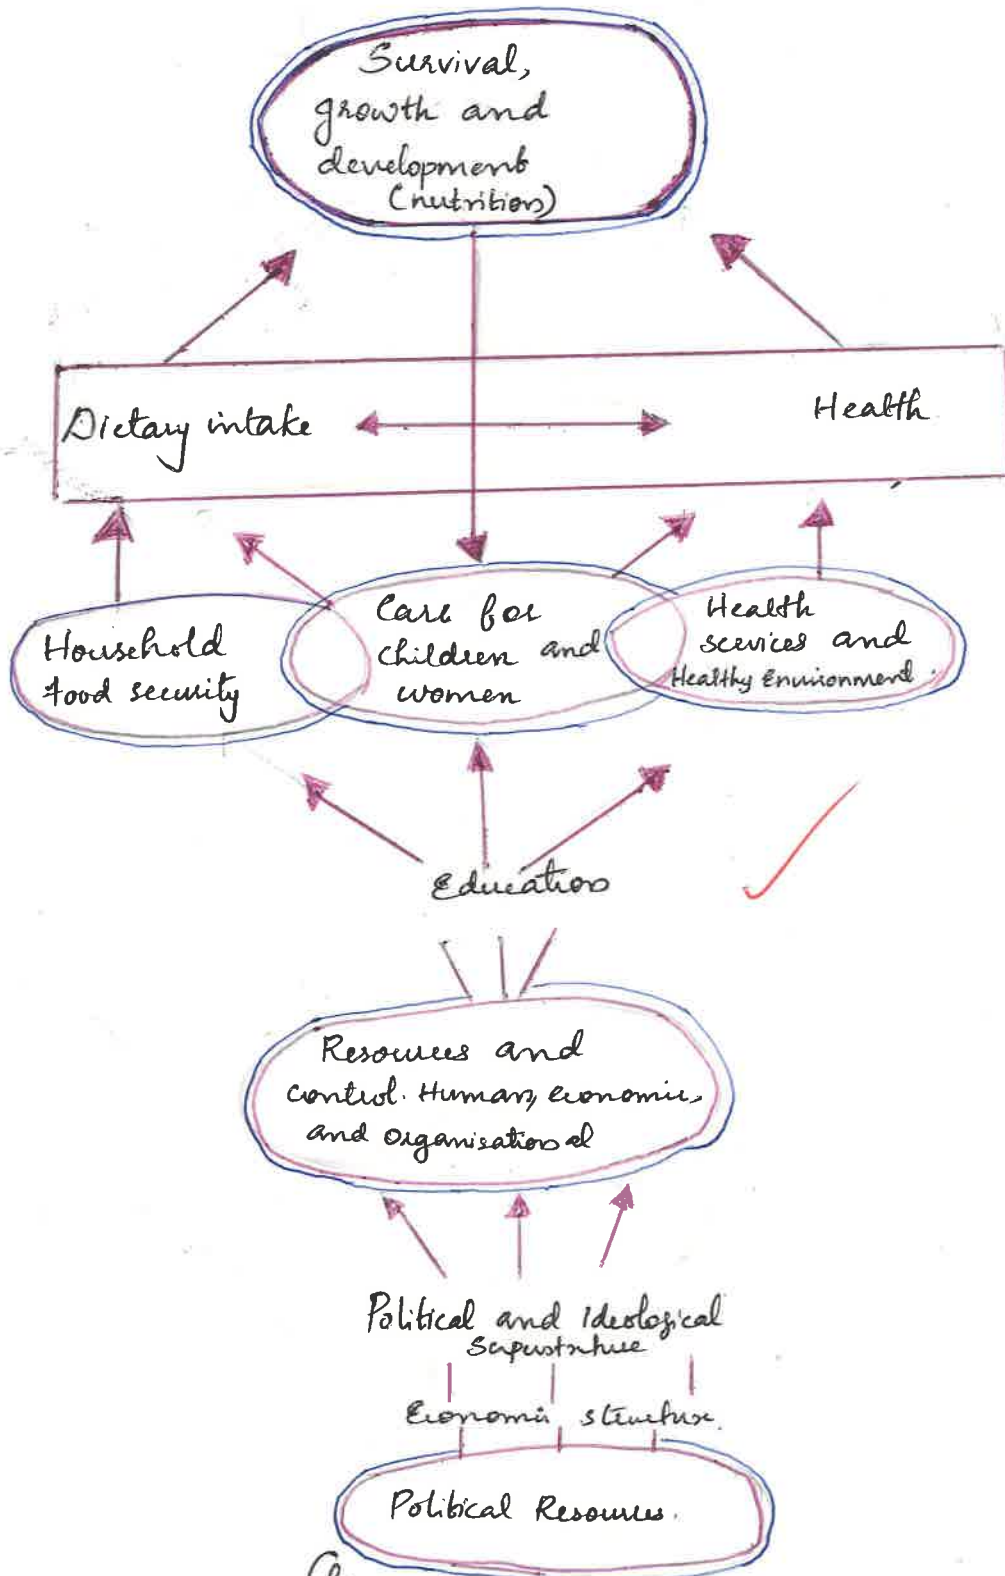 Survival,
growth and
development
(nutrition)
Dietary intake
Health
Household
food security
Care for
children and
women
Health
services and
Healthy Environment.
Education
Resources and
control. Human, economic,
and organisational
Political and Ideological
Economic structure.
Political Resources.